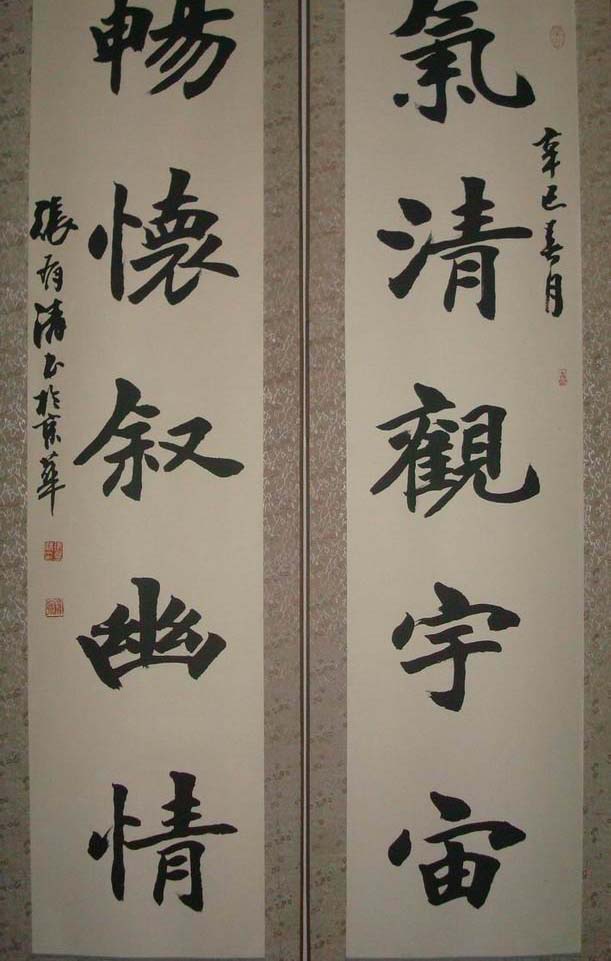 氣清觀宇宙
辛巳春月
暢懷叙幽情
張有清书於京華